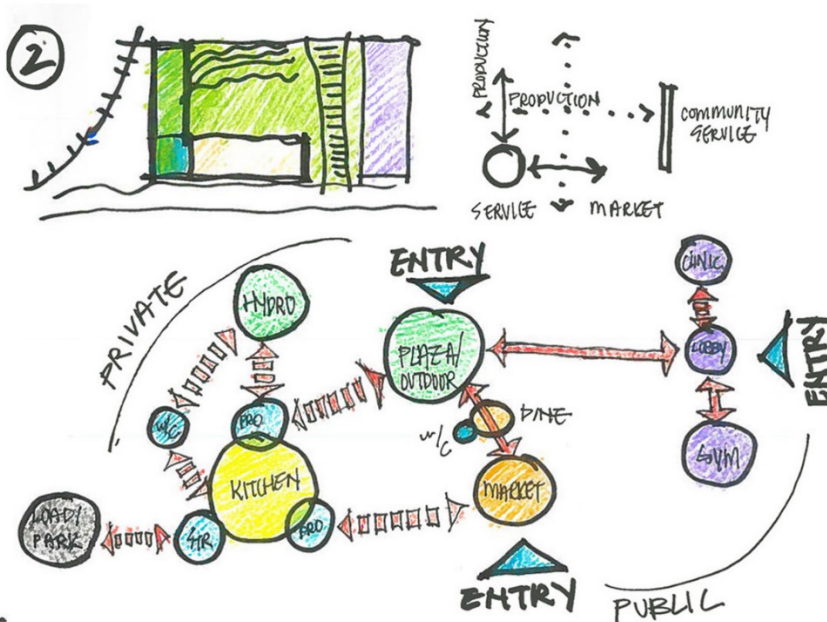 2
PRODUCTION
PRODUCTION
COMMUNITY
SERVICE
SERVICE
MARKET
PRIVATE
ENTRY
CLINIC
HYDRO
PLAZA/
OUTDOOR
LOBBY
ENTRY
W/C
PRO
DINE
W/C
KITCHEN
MARKET
GYM
LOAD/
PARK
STR
PRO
ENTRY
PUBLIC